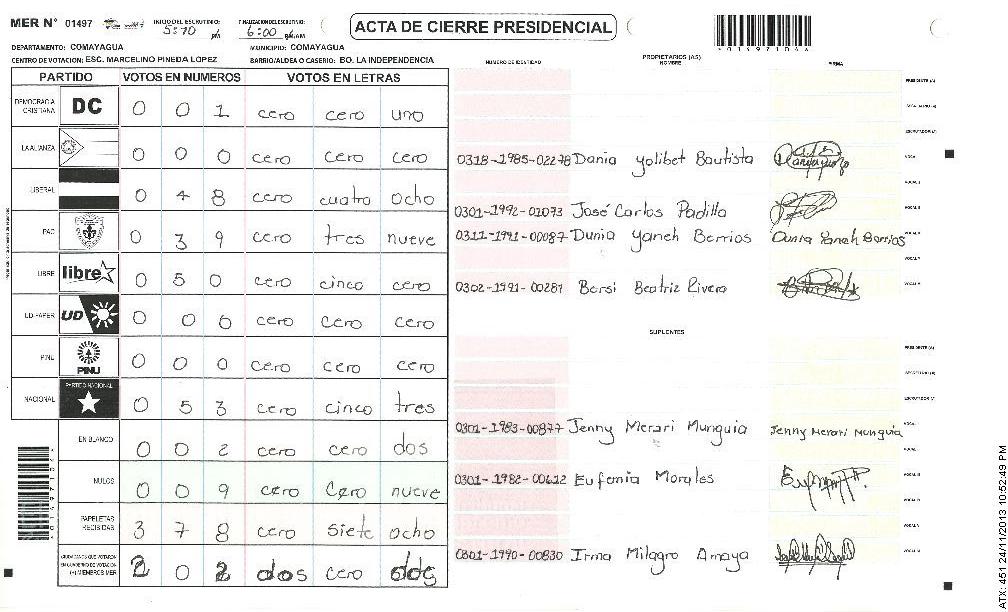 MER N° 01497 INICIO DEL ESCRUTINIO: 5:10 PM FINALIZACION DEL ESCRUTINIO: 6:00 ACTA DE CIERRE PRESIDENCIAL
DEPARTAMENTO: COMAYAGUA MUNICIPIO: COMAYAGUA
CENTRO DE VOTACION: ESC. MARCELINO PINEDA LOPEZ BARRIO/ALDEA O CASERIO: BO. LA INDEPENDENCIA
NUMERO DE IDENTIDAD PROPIETARIOS (AS) NOMBRE FIRMA
PARTIDO VOTOS EN NUMEROS VOTOS EN LETRAS
DEMOCRACIA CRISTIANA DC 0 0 1 cero cero uno
LA ALIANZA 0 0 0 cero cero cero
0318-1985-02278 Dania Yolibet Bautista
LIBERAL 0 4 8 cero cuatro ocho
0301-1992-01073 José Carlos Padilla
PAC 0 3 9 cero tres nueve
0311-1991-00087 Dunia Yaneh Berrios Dunia Yaneh Berrios
LIBRE libre 0 5 0 cero cinco cero
0302-1991-00287 Bersi Beatriz Rivera
UD-FAPER UD 0 0 0 cero cero cero
SUPLENTES
PINU PINU 0 0 0 cero cero cero
NACIONAL PARTIDO NACIONAL 0 5 3 cero cinco tres
0301-1983-00877 Jenny Merari Munguia Jenny Merari Munguia
EN BLANCO 0 0 2 cero cero dos
NULOS 0 0 9 cero cero nueve
0301-1982-00612 Eufemia Morales
PAPELETAS RECIBIDAS 3 7 8 cero siete ocho
CIUDADANOS QUE VOTARON EN CUADERNO DE VOTACION (+) MIEMBROS MER 2 0 2 dos cero dos
0301-1990-00830 Irma Milagro Amaya
ATX: 451 24/11/2013 10:52:49 PM